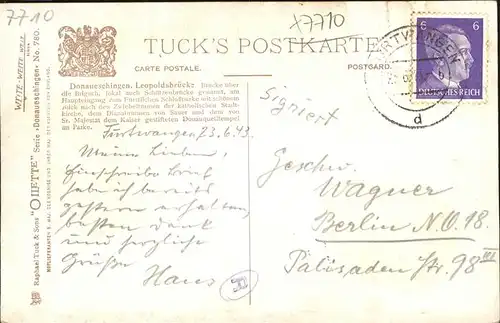 7710
x7710
TUCK'S POSTKARTE
CARTE POSTALE.
POSTCARD.
6
6
DEUTSCHES REICH
FURTWANGEN
d
WEITE-WEITE-WELT
"OILETTE" Serie »Donaueschingen« No. 780.
Raphael Tuck & Sons'
Donaueschingen. Leopoldsbrück: Brücke über
die Brigach, lokal auch Schützenbrücke genannt, am
Haupteingang zum Fürstlichen Schloßparke mit schönem
Blick nach den Zwiebeltürmen der katholischen Stadt-
kirche, dem Dianabrunnen von Sauer und dem von
Sr. Majestät dem Kaiser gestifteten Donauquelltempel
im Parke.
Signiert
Furtwangen 23.6.43.
Meine Lieben,
Einschreibe Brief
habe ich bereits
gestern erhalten,
besten Dank
und herzliche
Grüße
Hans
Geschw.
Wagner
Berlin N.O. 18
Palisaden Str. 98 III